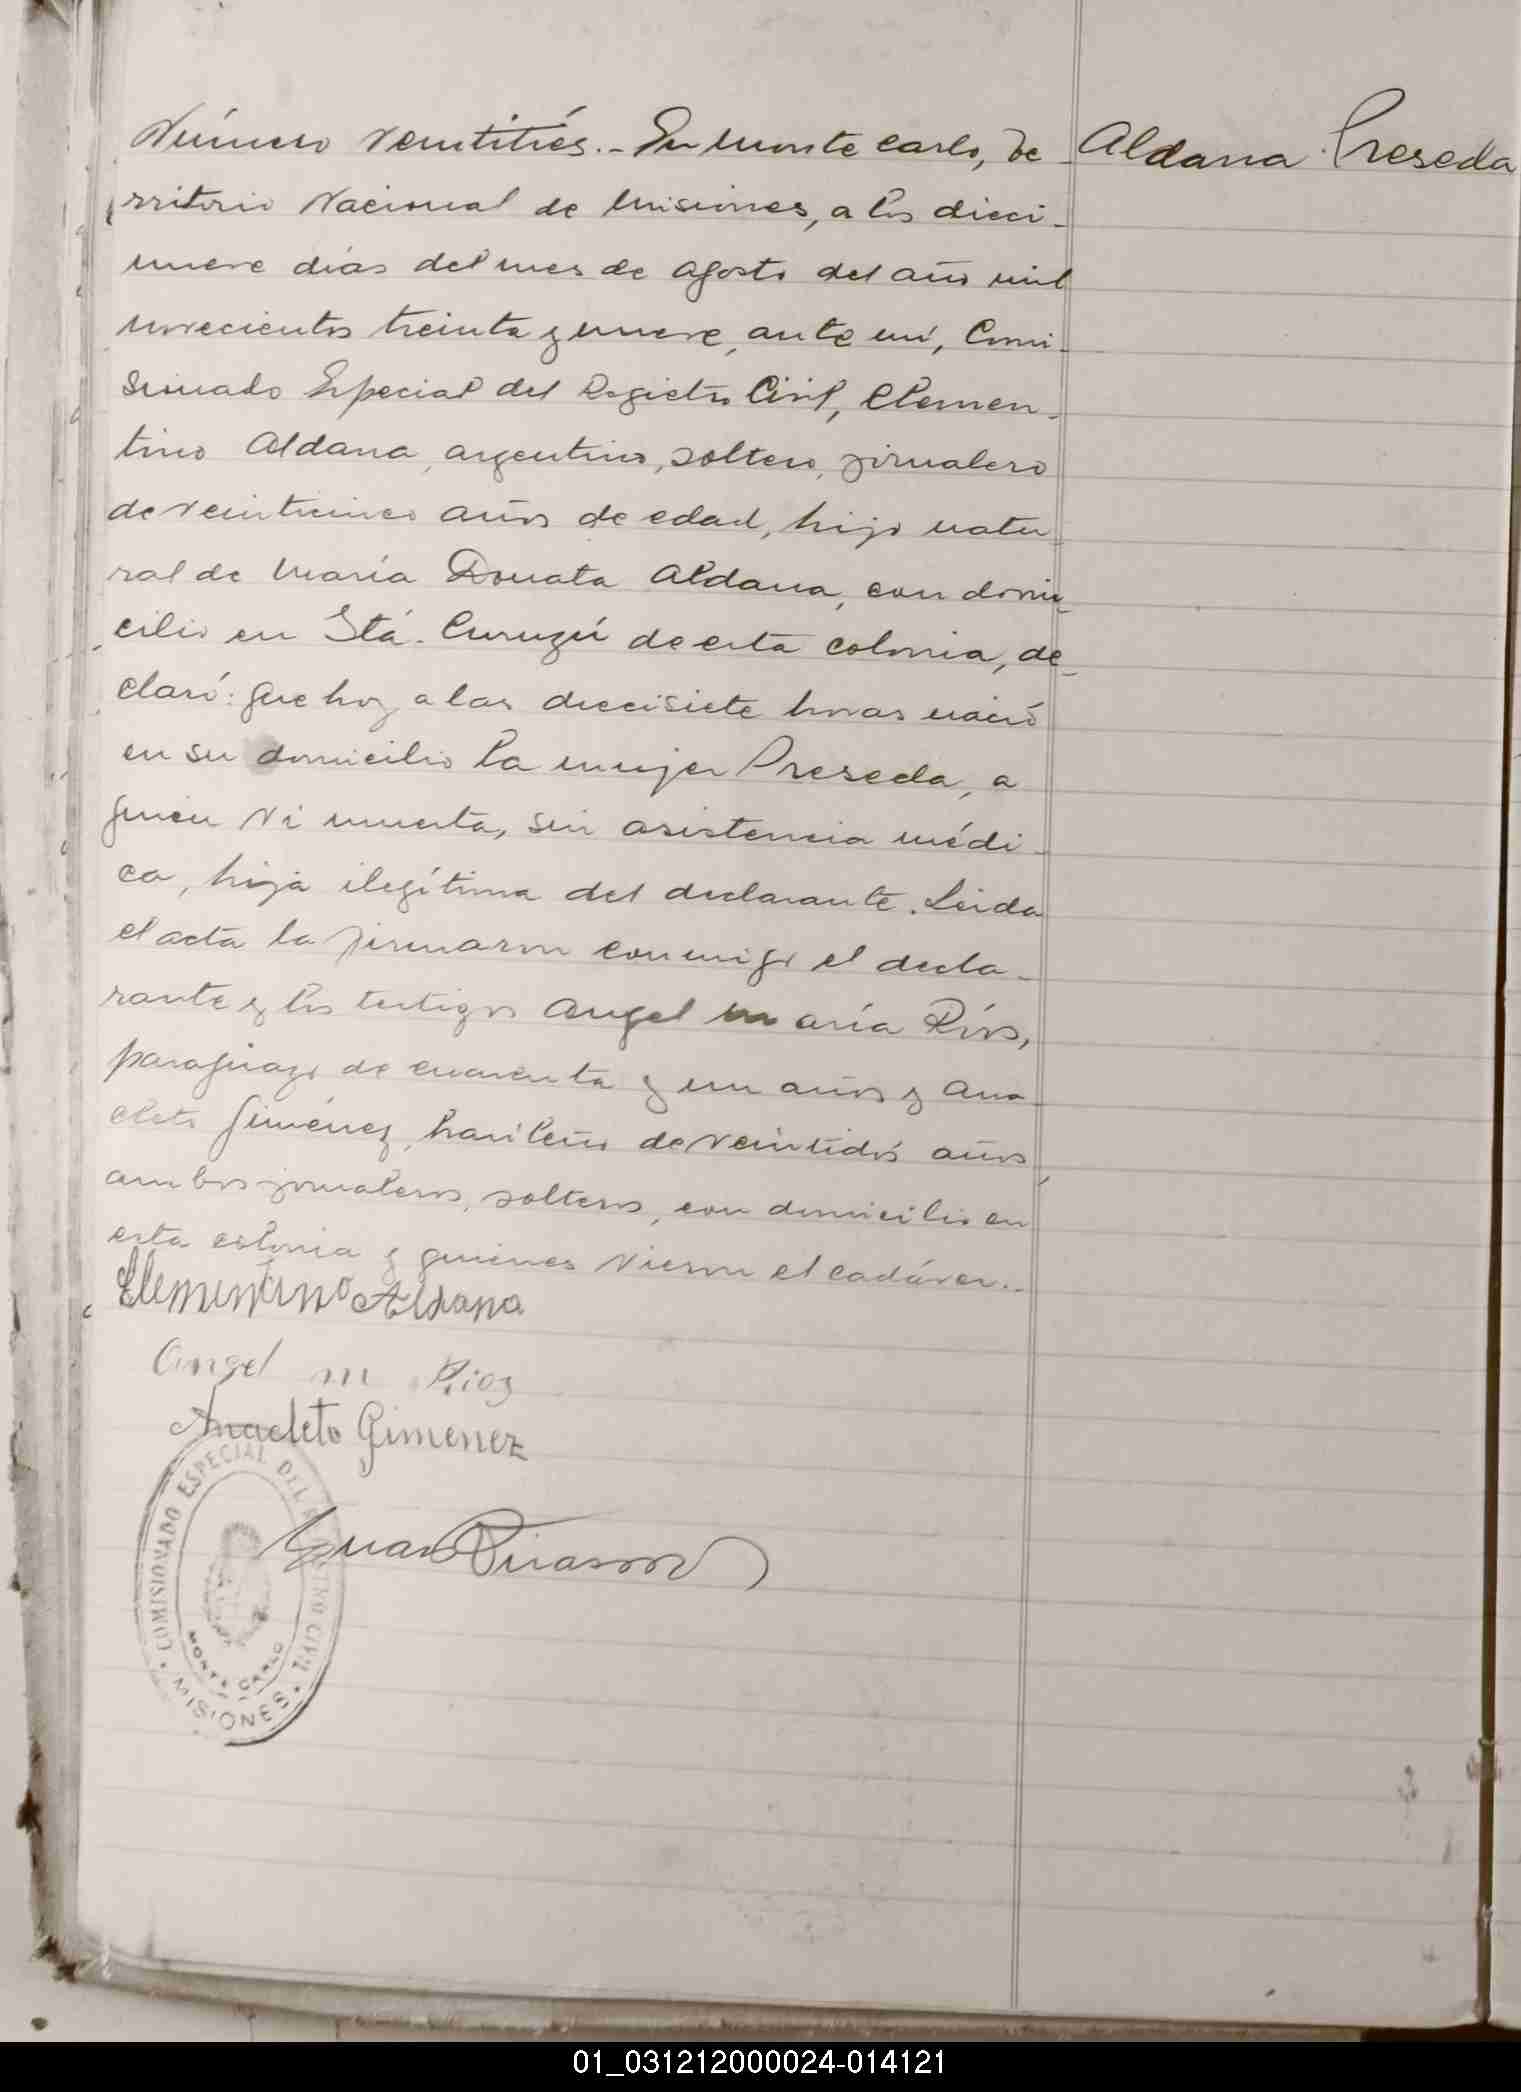 Número veintitrés.- En Monte Carlo, Te-
Aldana Preseda
rritorio Nacional de Misiones, a los dieci-
nueve días del mes de agosto del año mil
novecientos treinta y nueve, ante mí, Comi-
sionado Especial del Registro Civil, Clemen-
tino Aldana, argentino, soltero, jornalero
de veinticinco años de edad, hijo natu-
ral de María Donata Aldana, con domi-
cilio en Stá. Curuzú de esta colonia, de-
claró: que hoy a las diecisiete horas nació
en su domicilio la mujer Preseda, a
quien vi muerta, sin asistencia médi-
ca, hija ilegítima del declarante. Leída
el acta la firmaron conmigo el decla-
rante y los testigos Angel María Ríos,
paraguayo de cuarenta y un años y Ana-
cleto Giménez, brasileño de veintidós años,
ambos jornaleros, solteros, con domicilio en
esta colonia y quienes vieron el cadáver.-
Clementino Aldana
Angel M Rios
Anacleto Gimenez
COMISIONADO ESPECIAL DEL REGISTRO CIVIL
MONTE CARLO
MISIONES
01_031212000024-014121